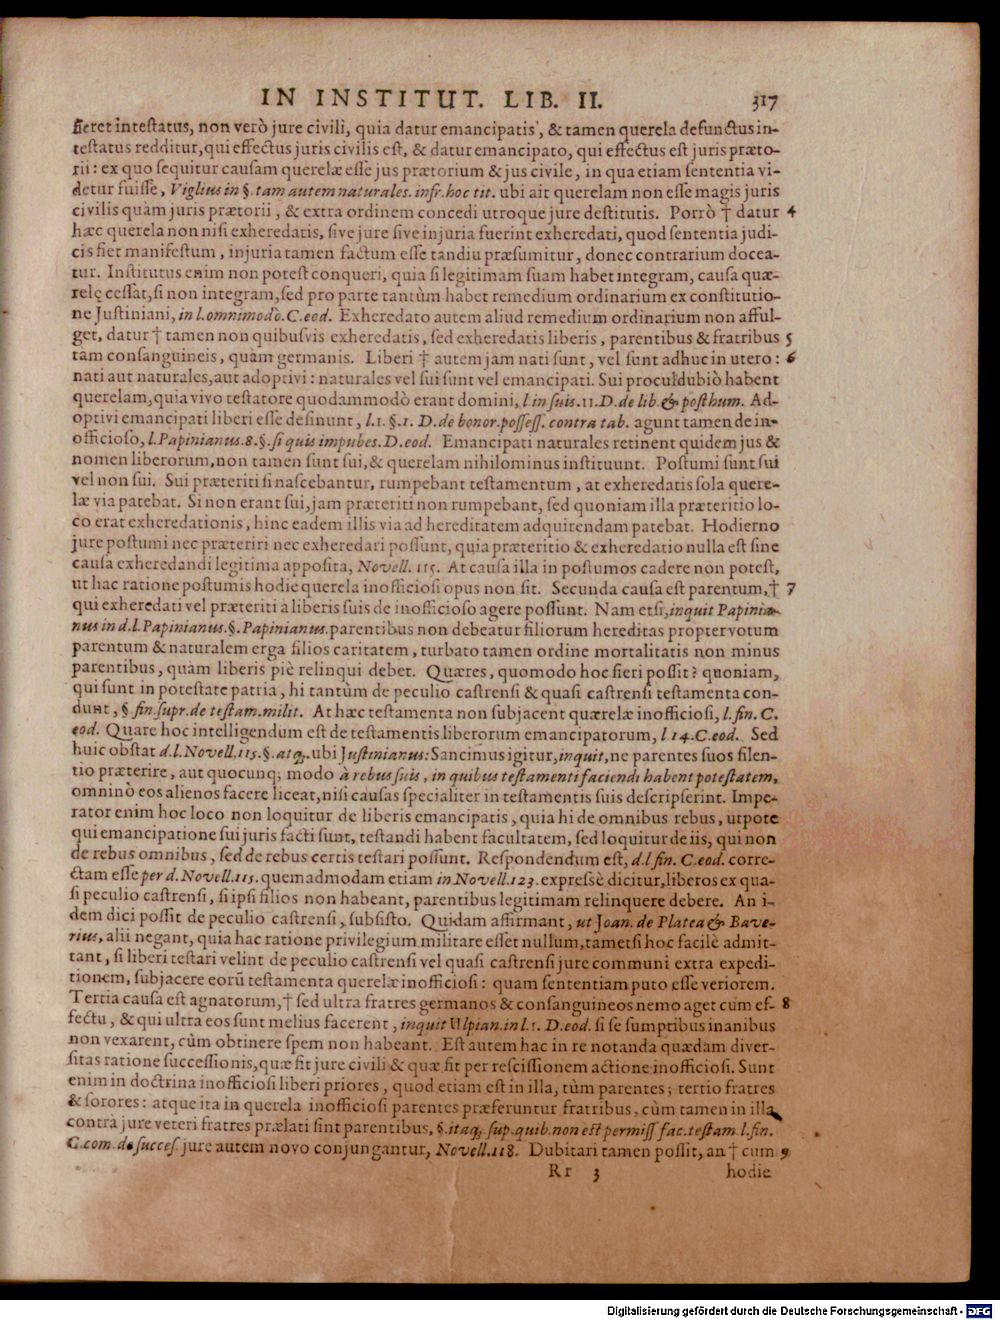 IN INSTITUT. LIB. II. 317
fieret intestatus, non verò jure civili, quia datur emancipatis, & tamen querela defunctus in-
testatus redditur, qui effectus juris civilis est, & datur emancipato, qui effectus est juris præto-
rii: ex quo sequitur causam querelæ esse jus prætorium & jus civile, in qua etiam sententia vi-
detur fuisse, Viglius in §. tam autem naturales. infr. hoc tit. ubi ait querelam non esse magis juris
civilis quàm juris prætorii, & extra ordinem concedi utroque jure destitutis. Porrò † datur 4
hæc querela non nisi exheredatis, sive jure sive injuria fuerint exheredati, quod sententia judi-
cis fiet manifestum, injuria tamen factum esse tandiu præsumitur, donec contrarium docea-
tur. Institutus enim non potest conqueri, quia si legitimam suam habet integram, causa quæ-
relę cessat, si non integram, sed pro parte tantùm habet remedium ordinarium ex constitutio-
ne Justiniani, in l. omnimodo. C. eod. Exheredato autem aliud remedium ordinarium non afful-
get, datur † tamen non quibusvis exheredatis, sed exheredatis liberis, parentibus & fratribus 5
tam consanguineis, quàm germanis. Liberi † autem jam nati sunt, vel sunt adhuc in utero: 6
nati aut naturales, aut adoptivi: naturales vel sui sunt vel emancipati. Sui proculdubiò habent
querelam, quia vivo testatore quodammodò erant domini, l in suis. 11. D. de lib. & posthum. Ad-
optivi emancipati liberi esse desinunt, l. 1. §. 1. D. de bonor. possess. contra tab. agunt tamen de in-
officioso, l. Papinianus. 8. §. si quis impubes. D. eod. Emancipati naturales retinent quidem jus &
nomen liberorum, non tamen sunt sui, & querelam nihilominus instituunt. Postumi sunt sui
vel non sui. Sui præteriti si nascebantur, rumpebant testamentum, at exheredatis sola quere-
læ via patebat. Si non erant sui, jam præteriti non rumpebant, sed quoniam illa præteritio lo-
co erat exheredationis, hinc eadem illis via ad hereditatem adquirendam patebat. Hodierno
jure postumi nec præteriri nec exheredari possunt, quia præteritio & exheredatio nulla est sine
causa exheredandi legitima apposita, Novell. 115. At causa illa in postumos cadere non potest,
ut hac ratione postumis hodie querela inofficiosi opus non sit. Secunda causa est parentum, † 7
qui exheredati vel præteriti à liberis suis de inofficioso agere possunt. Nam etsi, inquit Papinia-
nus in d. l. Papinianus. §. Papinianus. parentibus non debeatur filiorum hereditas propter votum
parentum & naturalem erga filios caritatem, turbato tamen ordine mortalitatis non minus
parentibus, quàm liberis piè relinqui debet. Quæres, quomodo hoc fieri possit? quoniam,
qui sunt in potestate patria, hi tantùm de peculio castrensi & quasi castrensi testamenta con-
dunt, § fin. supr. de testam. milit. At hæc testamenta non subjacent quærelæ inofficiosi, l. fin. C.
eod. Quare hoc intelligendum est de testamentis liberorum emancipatorum, l 14. C. eod. Sed
huic obstat d. l. Novell. 115. §. atq; ubi Justinianus: Sancimus igitur, inquit, ne parentes suos silen-
tio præterire, aut quocunq; modo à rebus suis, in quibus testamenti faciendi habent potestatem,
omninò eos alienos facere liceat, nisi causas specialiter in testamentis suis descripserint. Impe-
rator enim hoc loco non loquitur de liberis emancipatis, quia hi de omnibus rebus, utpote
qui emancipatione sui juris facti sunt, testandi habent facultatem, sed loquitur de iis, qui non
de rebus omnibus, sed de rebus certis testari possunt. Respondendum est, d. l fin. C. eod. corre-
ctam esse per d. Novell. 115. quemadmodam etiam in Novell. 123. expressè dicitur, liberos ex qua-
si peculio castrensi, si ipsi filios non habeant, parentibus legitimam relinquere debere. An i-
dem dici possit de peculio castrensi, subsisto. Quidam affirmant, ut Joan. de Platea & Bave-
rius, alii negant, quia hac ratione privilegium militare esset nullum, tametsi hoc facilè admit-
tant, si liberi testari velint de peculio castrensi vel quasi castrensi jure communi extra expedi-
tionem, subjacere eorũ testamenta querelæ inofficiosi: quam sententiam puto esse veriorem.
Tertia causa est agnatorum, † sed ultra fratres germanos & consanguineos nemo aget cum ef- 8
fectu, & qui ultra eos sunt melius facerent, inquit Ulpian. in l. 1. D. eod. si se sumptibus inanibus
non vexarent, cùm obtinere spem non habeant. Est autem hac in re notanda quædam diver-
sitas ratione successionis, quæ fit jure civili & quæ fit per rescissionem actione inofficiosi. Sunt
enim in doctrina inofficiosi liberi priores, quod etiam est in illa, tùm parentes; tertio fratres
& sorores: atque ita in querela inofficiosi parentes præferuntur fratribus, cùm tamen in illa
contra jure veteri fratres prælati sint parentibus, §. itaq; sup. quib. non est permiss. fac. testam. l. fin.
C. com. de succes. jure autem novo conjungantur, Novell. 118. Dubitari tamen possit, an † cum 9
Rr 3 hodie
Digitalisierung gefördert durch die Deutsche Forschungsgemeinschaft - DFG